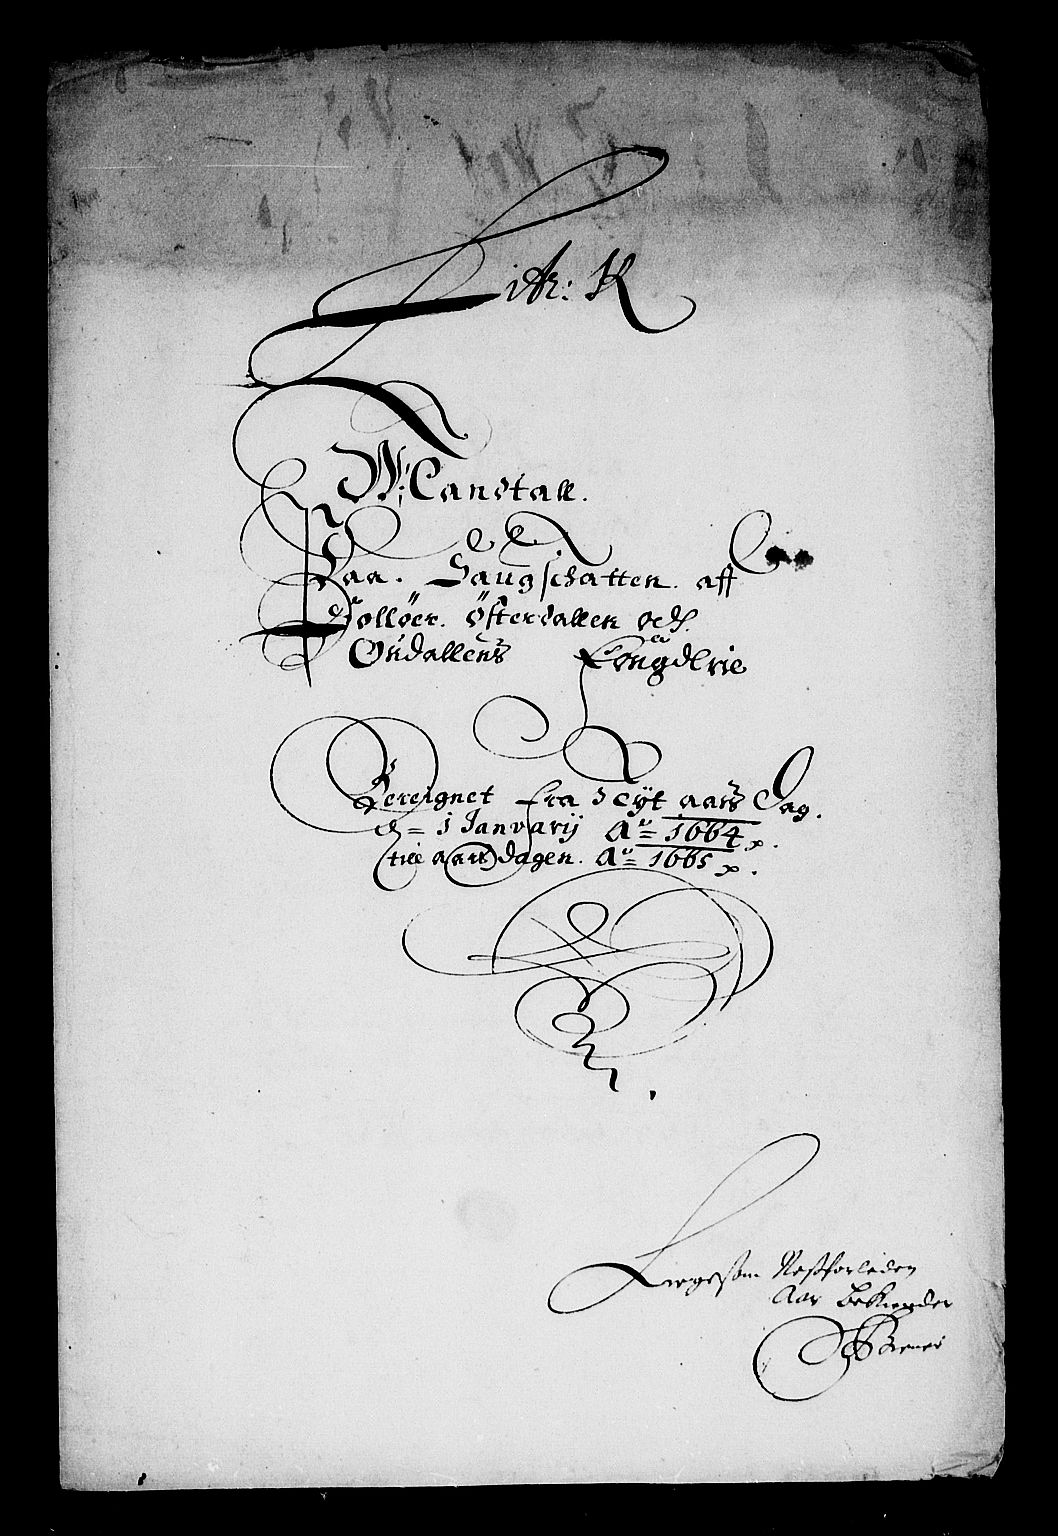 Litr: K
Mandtall.
Paa. Saugschatten. aff
Solløer. Østerdallen och
Odallens Fougderie
Bereignet fra Nyt aars Dag.
d= 1 Janvarij A°= 1664
till aars dagen. A°= 1665
Ligesom Nestforleden
Aar Bekiender